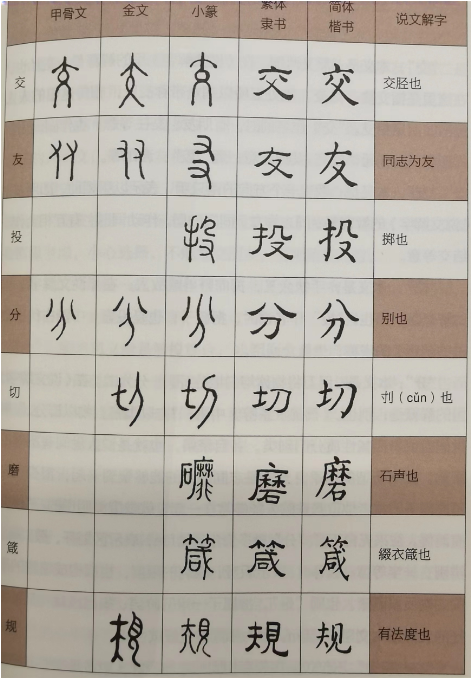 甲骨文 金文 小篆 繁体隶书 简体楷书 说文解字
交 交 交 交 交 交 交胫也
友 友 友 友 友 友 同志为友
投 投 投 投 掷也
分 分 分 分 分 分 别也
切 切 切 切 切 刌(cǔn)也
磨 磨 磨 磨 石声也
箴 箴 箴 箴 綴衣箴也
规 規 規 規 规 有法度也